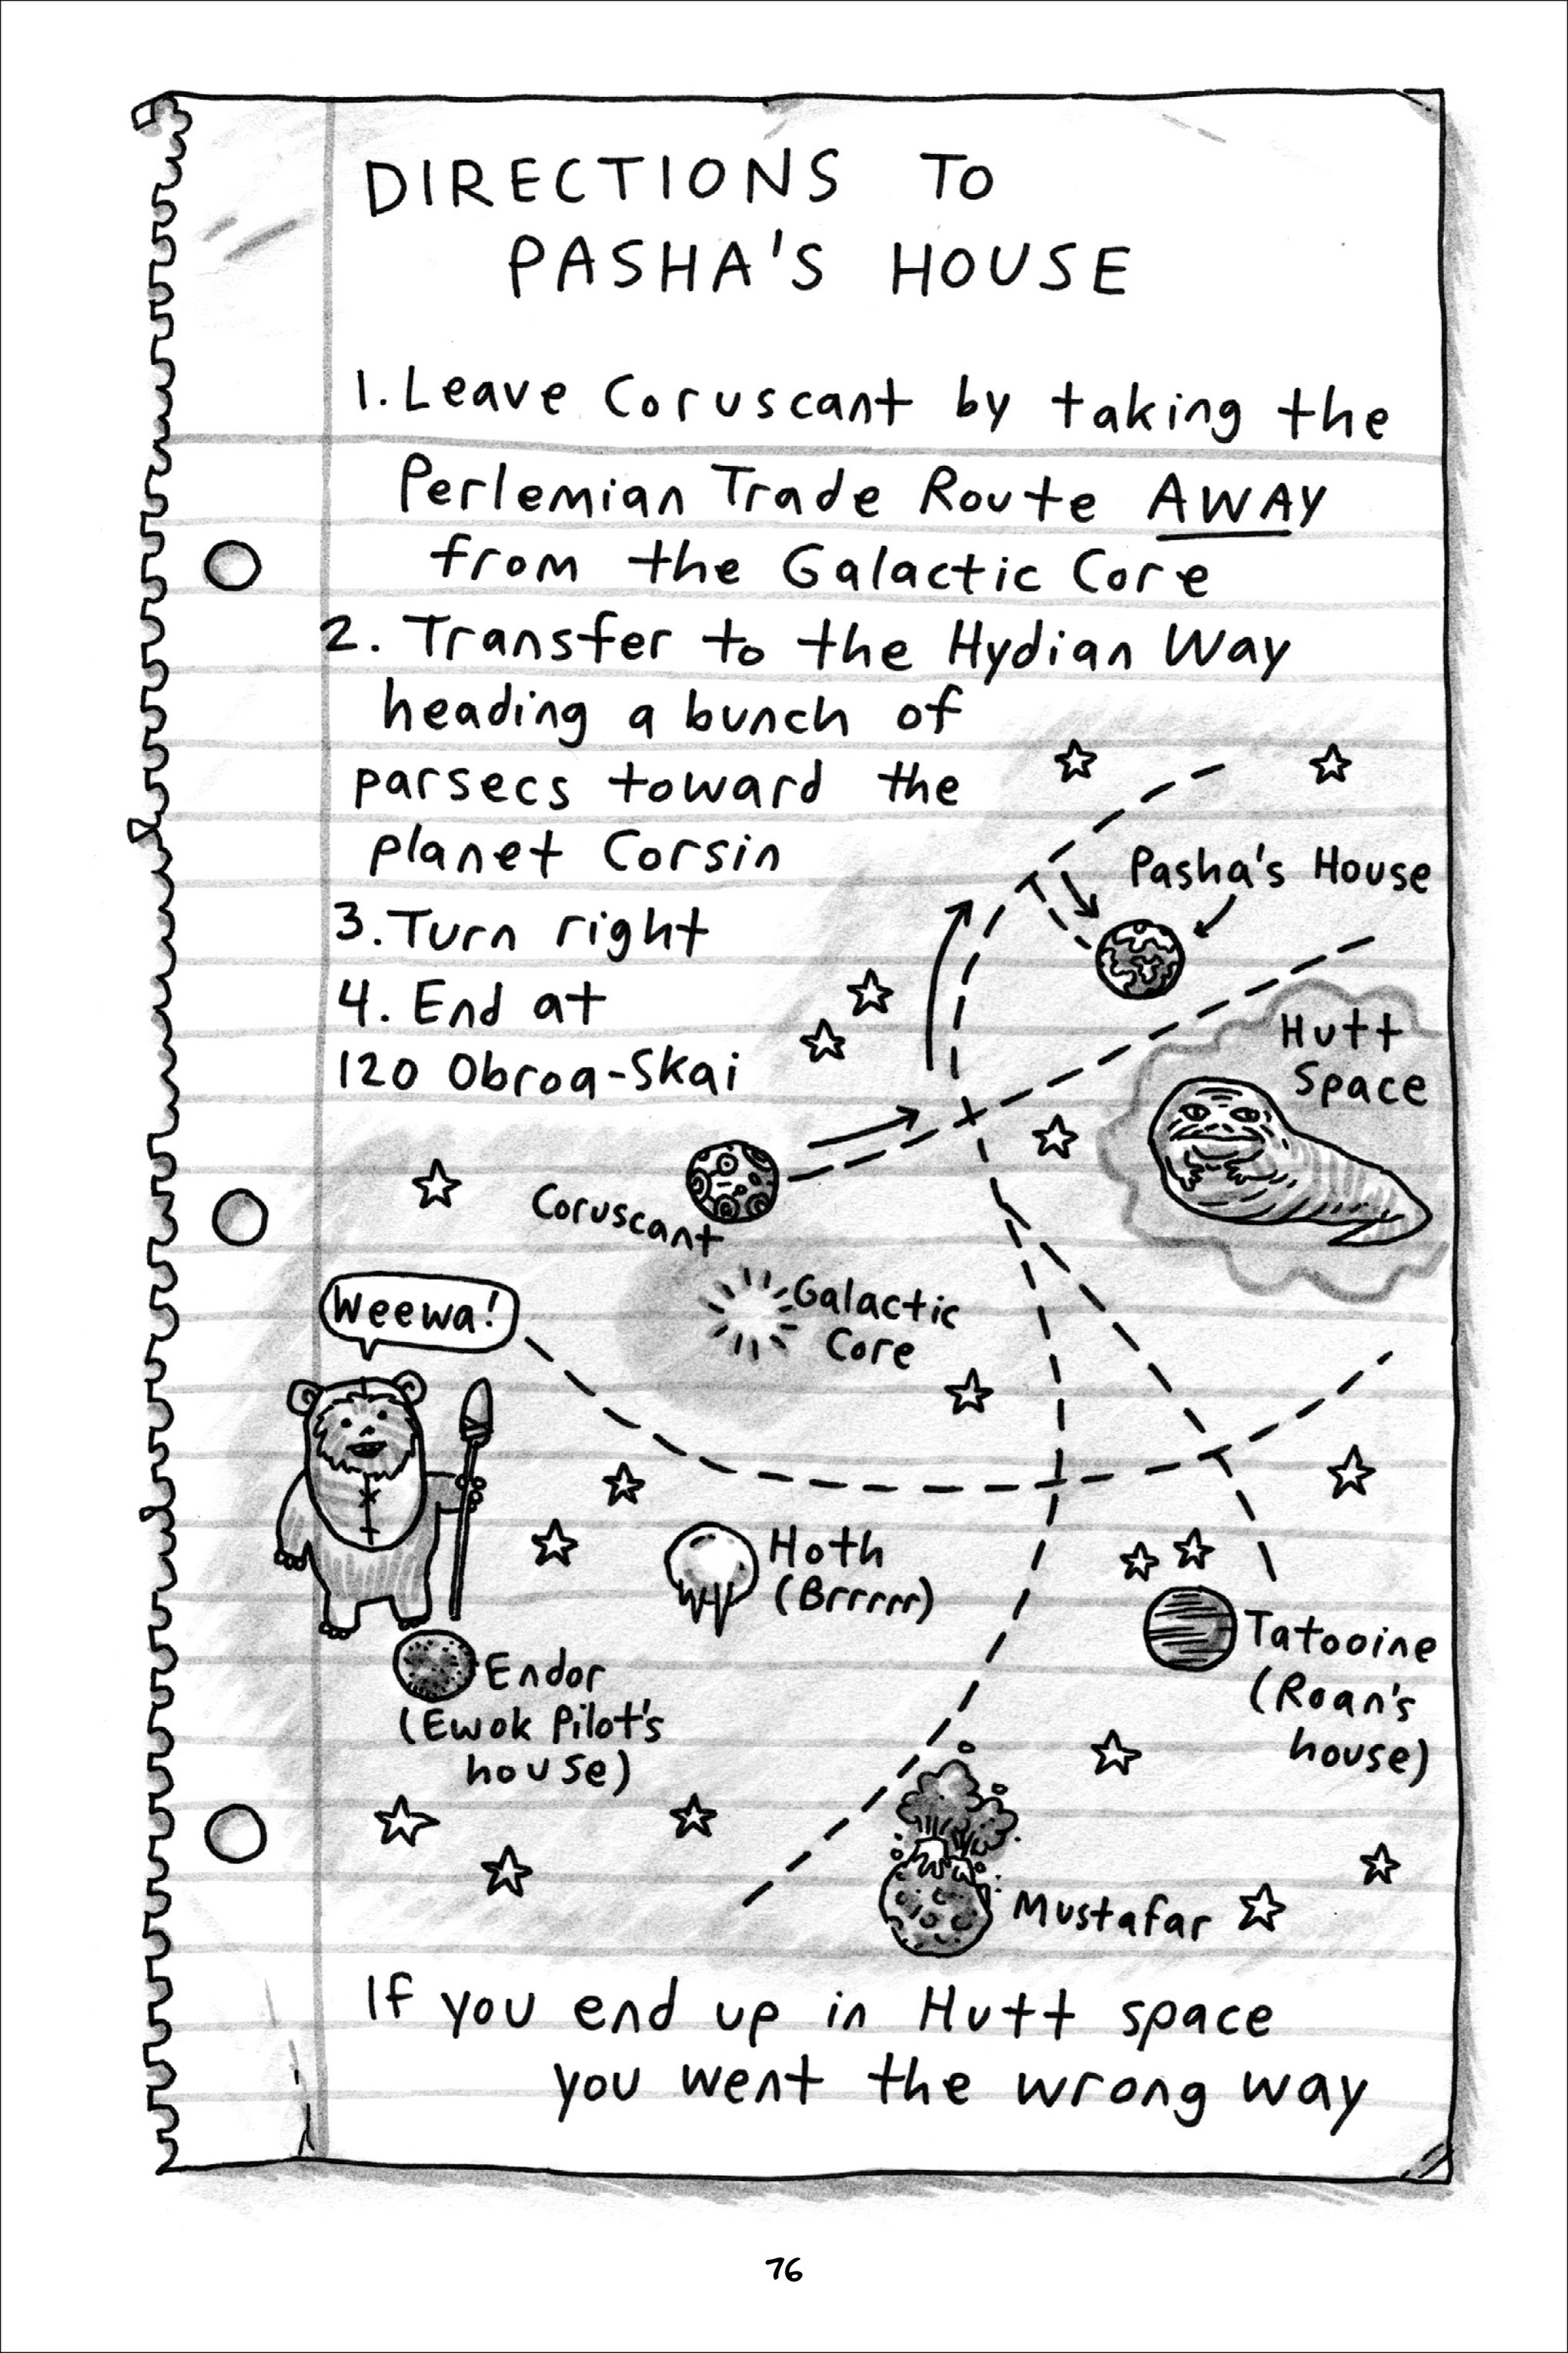 DIRECTIONS TO
PASHA'S HOUSE
1. Leave Coruscant by taking the
Perlemian Trade Route AWAY
from the Galactic Core
2. Transfer to the Hydian Way
heading a bunch of
parsecs toward the
planet Corsin
3. Turn right
4. End at
120 Obroa-Skai
Pasha's House
Hutt
Space
Coruscant
Galactic
Core
Weewa!
Hoth
(Brrrrr)
Endor
(Ewok Pilot's
house)
Tatooine
(Roan's
house)
Mustafar
If you end up in Hutt space
you went the wrong way
76